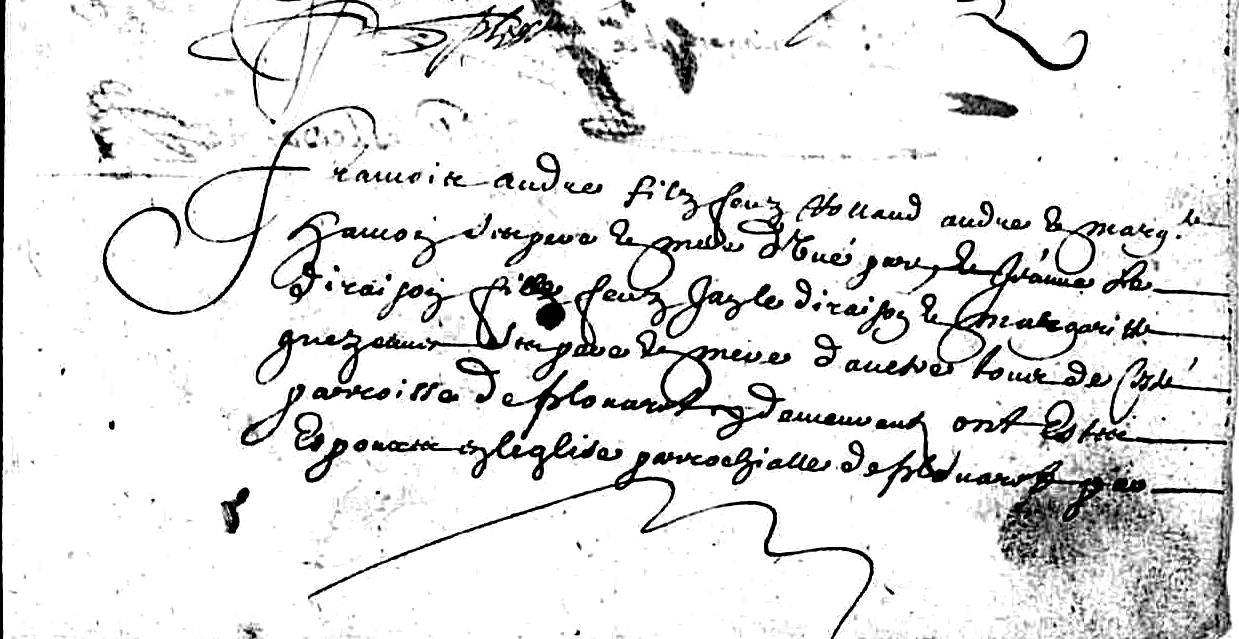 francois andre filz feuz Rolland andre & marg.te
hamon ses pere & mere d'Une part, & Jeanne le
diraison fille feuz Jayle diraison & Margaritte
guezenec ses pere & mere d'autre tous de cette
parroisse de plouaret y demeurant ont Estes
Espouzes en leglise parrochialle de plouaret par